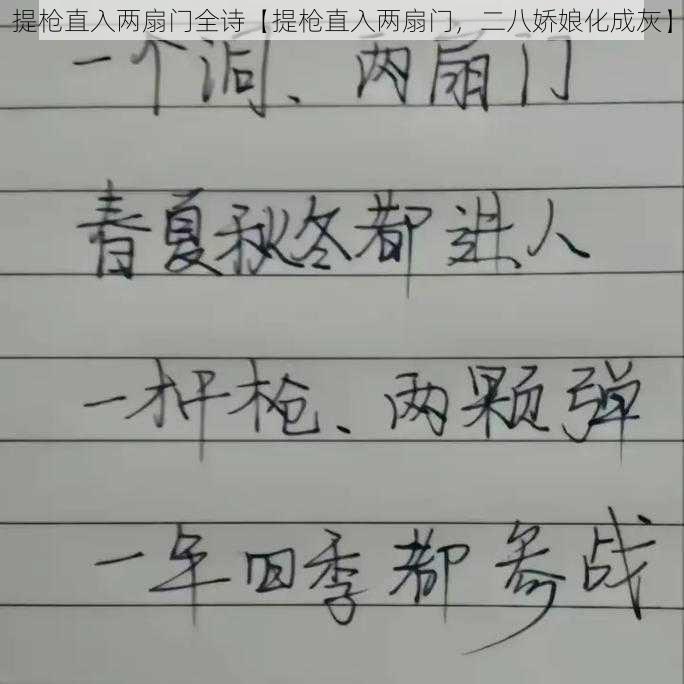 提枪直入两扇门全诗【提枪直入两扇门，二八娇娘化成灰】
一个洞、两扇门
春夏秋冬都进人
一杆枪、两颗弹
一年四季都参战